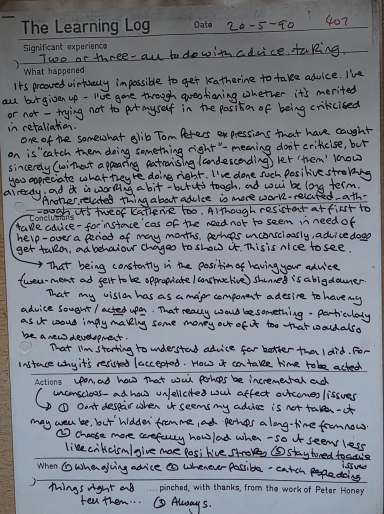 The Learning Log Date 20-5-90 407
Significant experience
Two or three - all to do with advice taking.
What happened
It's proved virtually impossible to get Katherine to take advice. I've
all but given up - I've gone through questioning whether it's merited
or not - trying not to put myself in the position of being criticised
in retaliation.
One of the somewhat glib Tom Peters expressions that have caught
on is "catch them doing something right" - meaning don't criticise, but
sincerely (without appearing patronising/condescending) let 'them' know
you appreciate what they're doing right. I've done such positive stroking
already, and it is working a bit - but it's tough, and will be long term.
Another related thing about advice is more work-related - alth-
ough it's true of Katherine too. Although resistant at first to
Conclusions
take advice - for instance cos of the need not to seem in need of
help - over a period of many months, perhaps unconsciously, advice does
get taken, and behaviour changes to show it. This is nice to see.
That being constantly in the position of having your advice
(well-meant and felt to be appropriate/constructive) shunned is a big downer.
That my vision has as a major component a desire to have my
advice sought/acted upon. That really would be something - particularly
as it would imply making some money out of it too - that would also
be a new development.
That I'm starting to understand advice far better than I did. For
instance why it's resisted/accepted. How it can take time to be acted
Actions upon, and how that will perhaps be incremental and
unconscious - and how un/elicited will affect outcomes/issues
① Don't despair when it seems my advice is not taken - it
may well be, but hidden from me, and perhaps a long time from now.
② Choose more carefully how/and when - so it seems less
like criticism/give more positive strokes ③ Stay tuned to advice
issues
When ① When giving advice ② whenever possible - catch people doing
things right and .... pinched, with thanks, from the work of Peter Honey
tell them... ③ Always.